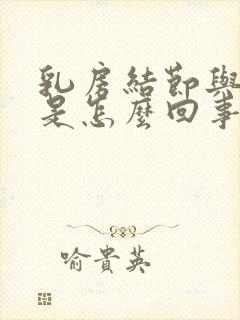 乳房結節與
是怎麼回事
喻貴英